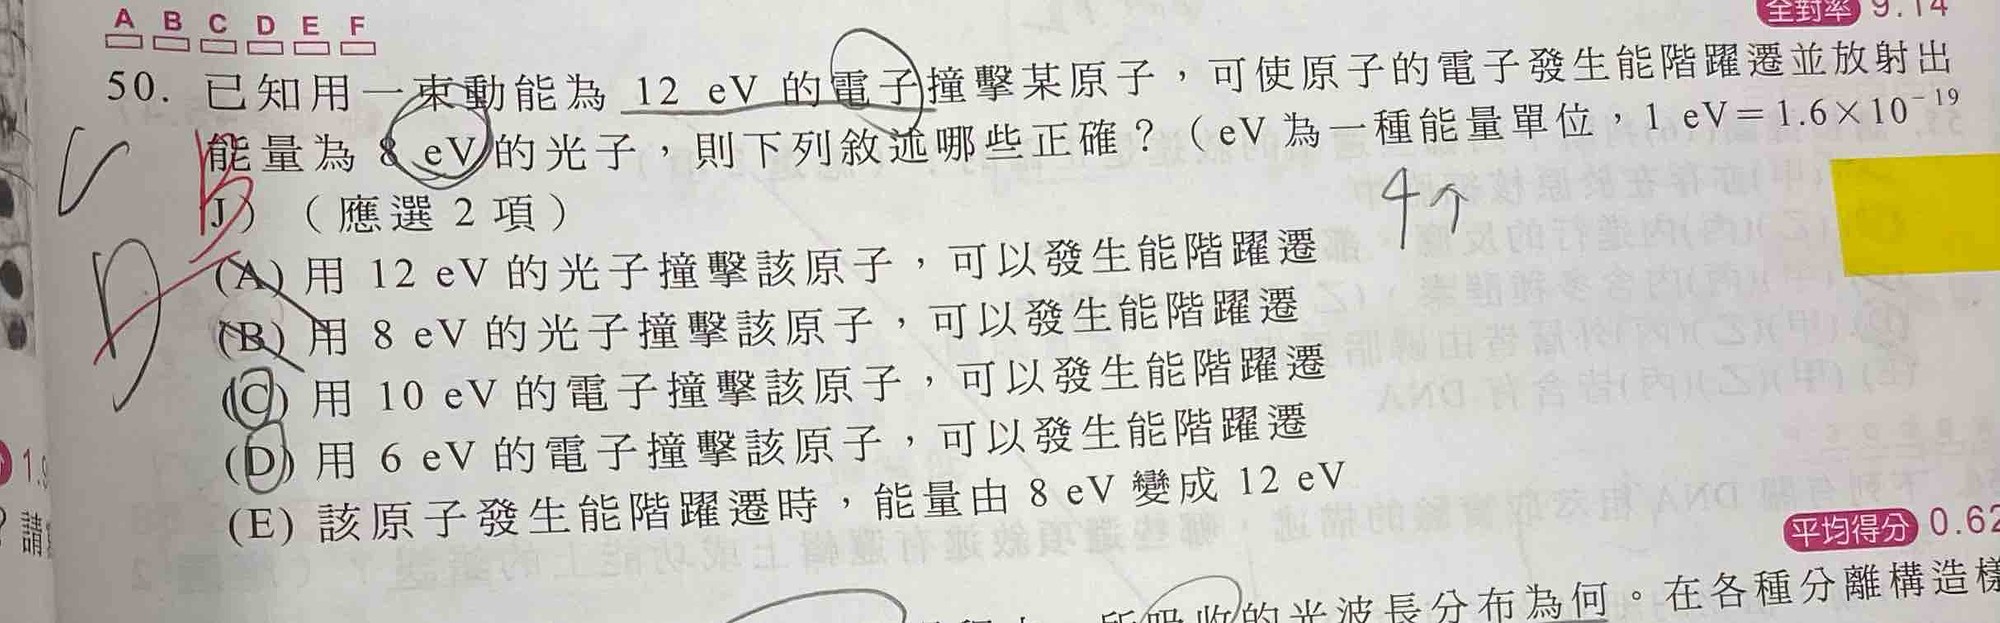 A B C D E F
全對率 9.14
50. 已知用一束動能為 12 eV 的電子撞擊某原子，可使原子的電子發生能階躍遷並放射出
能量為 8 eV 的光子，則下列敘述哪些正確？（eV 為一種能量單位，1 eV＝1.6×10⁻¹⁹
J）（應選 2 項）
4個
(A) 用 12 eV 的光子撞擊該原子，可以發生能階躍遷
(B) 用 8 eV 的光子撞擊該原子，可以發生能階躍遷
(C) 用 10 eV 的電子撞擊該原子，可以發生能階躍遷
(D) 用 6 eV 的電子撞擊該原子，可以發生能階躍遷
(E) 該原子發生能階躍遷時，能量由 8 eV 變成 12 eV
C
B
D
請
平均得分 0.62
所吸收的光波長分布為何。在各種分離構造樣